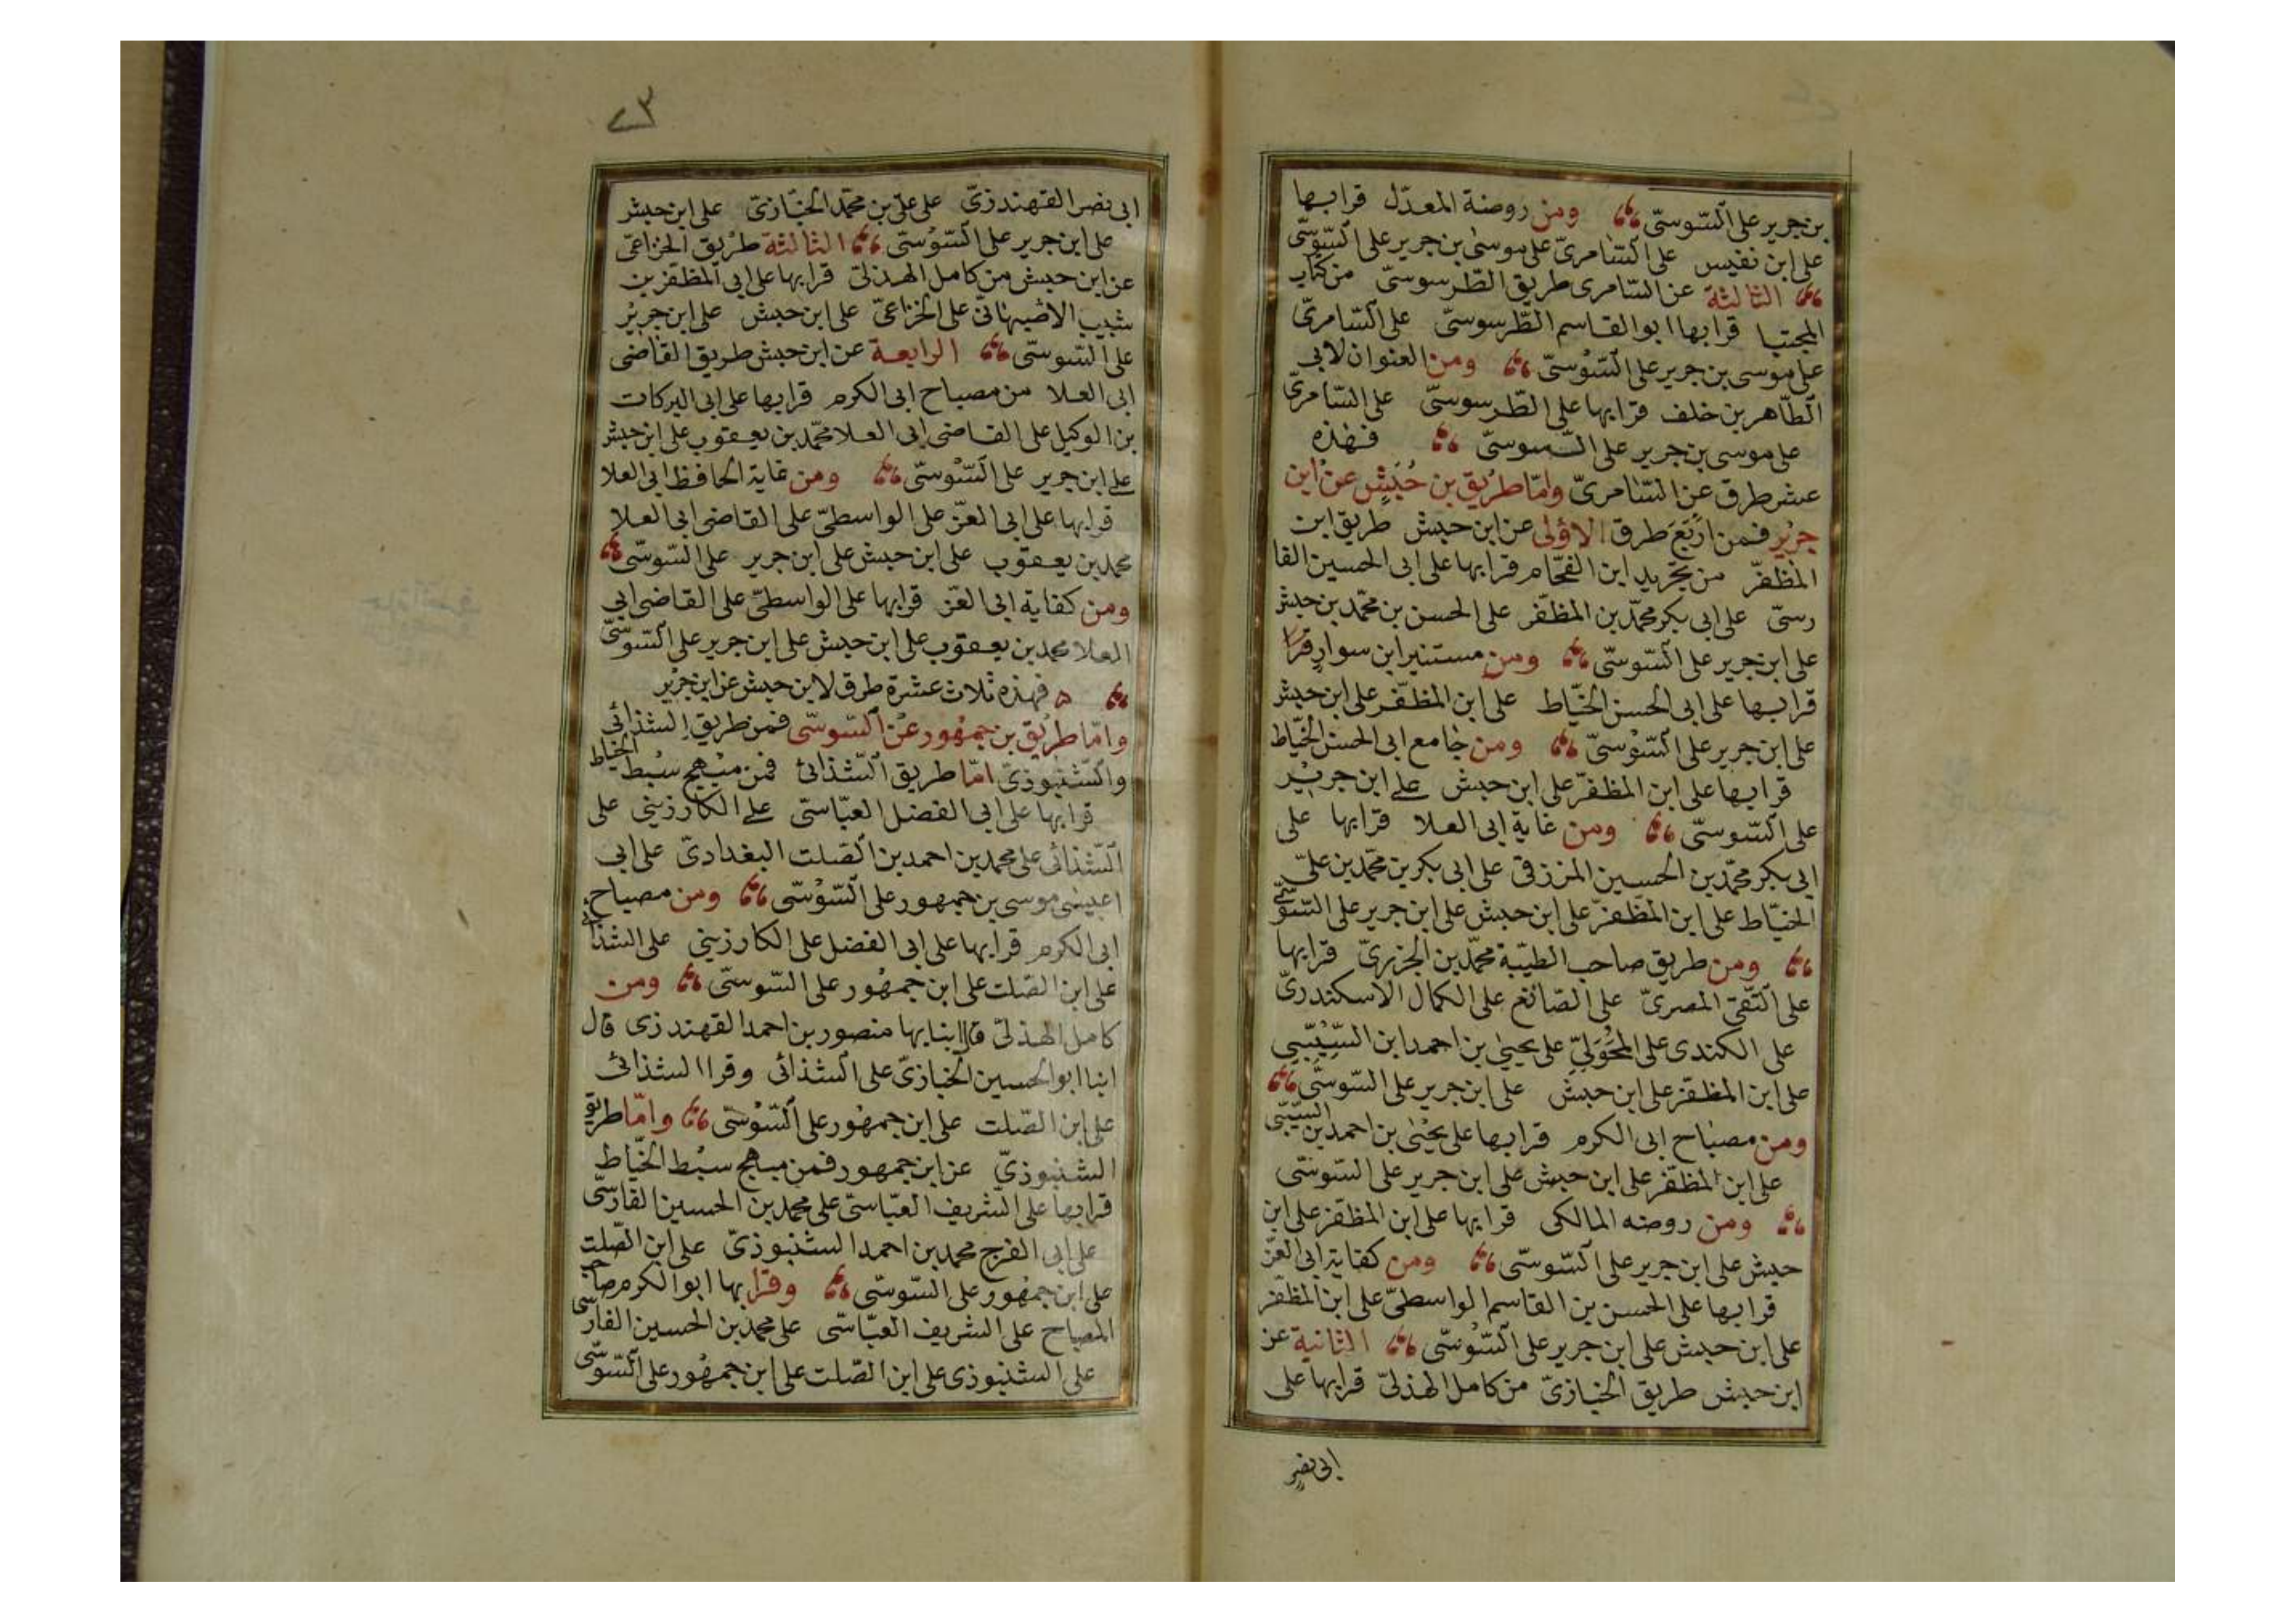 بن جرير على السّوسىّ ومن روضة المعدّل قرا بها
على ابن نفيس على السّامرىّ على موسى بن جرير على السّوسىّ
الثالثة عن السّامرى طريق الطّرسوسىّ من كتاب
المجتبا قرا بها ابو القاسم الطّرسوسىّ على السّامرىّ
على موسى بن جرير على السّوسىّ ومن العنوان لابى
الطّاهر بن خلف قرا بها على الطّرسوسىّ على السّامرىّ
على موسى بن جرير على السّوسىّ فهذه
عشر طرق عن السّامرىّ وامّا طريق بن حبش عن ابن
جرير فمن اربع طرق الاولى عن ابن حبش طريق ابن
المظفّر من تجريد ابن الفحّام قرا بها على ابى الحسين الفا
رسىّ على ابى بكر محمّد بن المظفّر على الحسن بن محمّد بن حبش
على ابن جرير على السّوسىّ ومن مستنير ابن سوار قرا
قرا بها على ابى الحسن الخيّاط على ابن المظفّر على ابن حبش
على ابن جرير على السّوسىّ ومن جامع ابى الحسن الخيّاط
قرا بها على ابن المظفّر على ابن حبش على ابن جرير
على السّوسىّ ومن غاية ابى العلا قرا بها على
ابى بكر محمّد بن الحسين المزرفى على ابى بكر بن محمّد بن علىّ
الخيّاط على ابن المظفّر على ابن حبش على ابن جرير على السّوسىّ
ومن طريق صاحب الطيّبة محمّد بن الجزرىّ قرا بها
على التّقى المصرىّ على الصّائغ على الكمال الاسكندرىّ
على الكندى على المحوّلىّ على يحيى بن احمد ابن السّيبىّ
على ابن المظفّر على ابن حبش على ابن جرير على السّوسىّ
ومن مصباح ابى الكرم قرا بها على يحيى بن احمد بن السّيبىّ
على ابن المظفّر على ابن حبش على ابن جرير على السّوسىّ
ومن روضه المالكى قرا بها على ابن المظفّر على ابن
حبش على ابن جرير على السّوسىّ ومن كفاية ابى العزّ
قرا بها على الحسن بن القاسم الواسطىّ على ابن المظفّر
على ابن حبش على ابن جرير على السّوسىّ الثانية عن
ابن حبش طريق الخبازىّ من كامل الهذلىّ قرا بها على
ابى نصر
٢٣
ابى نصر القهندزىّ على علىّ بن محمّد الخبّازىّ على ابن حبش
على ابن جرير على السّوسىّ الثالثة طريق الخزاعىّ
عن ابن حبش من كامل الهذلىّ قرا بها على ابى المظفّر بن
شبيب الاصبهانىّ على الخزاعىّ على ابن حبش على ابن جرير
على السّوسىّ الرابعة عن ابن حبش طريق القاضى
ابى العلا من مصباح ابى الكرم قرا بها على ابى البركات
بن الوكيل على القاضى ابى العلا محمّد بن يعقوب على ابن حبش
على ابن جرير على السّوسىّ ومن غاية الحافظ ابى العلا
قرا بها على ابى العزّ على الواسطىّ على القاضى ابى العلا
محمد بن يعقوب على ابن حبش على ابن جرير على السّوسىّ
ومن كفاية ابى العزّ قرا بها على الواسطىّ على القاضى ابى
العلا محمد بن يعقوب على ابن حبش على ابن جرير على السّوسىّ
فهذه ثلاث عشرة طرق لابن حبش عن ابن جرير
وامّا طريق بن جمهور عن السّوسى فمن طريق الشذائى
والشّنبوذىّ امّا طريق الشّذائى فمن مبهج سبط الخياط
قرا بها على ابى الفضل العبّاسىّ على الكارزينى على
الشّذائى على محمد بن احمد بن الصّلت البغدادىّ على ابى
اعيسى موسى بن جمهور على السّوسىّ ومن مصباح
ابى الكرم قرا بها على ابى الفضل على الكارزينى على الشذائى
على ابن الصّلت على ابن جمهور على السّوسىّ ومن
كامل الهذلىّ قال انبا بها منصور بن احمد القهندزى قال
انبا ابو الحسين الخبازىّ على الشذائى وقرا الشذائى
على ابن الصّلت على ابن جمهور على السّوسىّ وامّا طريق
الشنبوذىّ عن ابن جمهور فمن مبهج سبط الخيّاط
قرا بها على الشريف العبّاسىّ على محمد بن الحسين الفارسىّ
على ابى الفرج محمد بن احمد الشنبوذىّ على ابن الصّلت
على ابن جمهور على السّوسىّ وقرا بها ابو الكرم صاحب
المصباح على الشريف العبّاسى على محمد بن الحسين الفارسى
على الشنبوذى على ابن الصّلت على ابن جمهور على السّوسّى